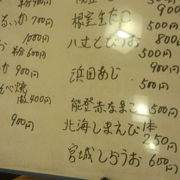 900円
根室生たこ
500円
八丈とびうお
800円
浜田あじ
500円
能登赤なまこ
500円
北海しまえび1本
250円
宮城しらうお
600円
900円
1000円
粉 600円
900円
焼
400円
900円